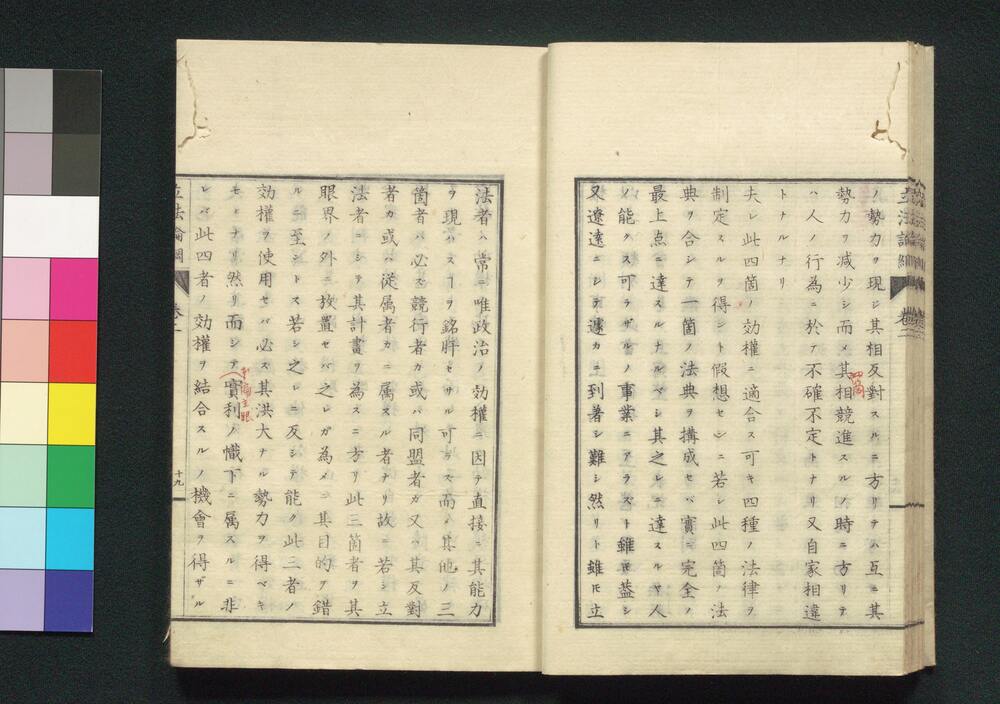 ノ勢力ヲ現シ其相反對スルニ方リテハ互ニ其
勢力ヲ減少シ而メ其相競進スルノ時ニ方リテ
ハ人ノ行為ニ於テ不確不定トナリ又自家相違
トナルナリ
夫レ此四箇ノ効權ニ適合ス可キ四種ノ法律ヲ
制定スルヲ得ント假想センニ若シ此四箇ノ法
典ヲ合シテ一箇ノ法典ヲ搆成セバ實ニ完全ノ
最上点ニ達スルナルベシ其之レニ達スルヤ人
ノ能クス可ラザルノ事業ニアラズト雖𪜈蓋シ
又遼遠ニシテ遽カニ到着シ難シ然リト雖𪜈立
法者ハ常ニ唯政治ノ効權ニ因テ直接ニ其能力
ヲ現ハスヿヲ銘牌セサル可ラズ而メ其他ノ三
箇者ハ必ス競行者カ或バ同盟者カ又ハ其反對
者カ或バ從属者カニ属スル者ナリ故ニ若シ立
法者ニシテ其計畫ヲ為スニ方リ此三箇者ヲ其
眼界ノ外ニ放置セバ之レガ為メニ其目的ヲ錯
ルニ至ントス若シ之レニ反シテ能ク此三者ノ
効權ヲ使用セバ必ス其洪大ナル勢力ヲ得ベキ
モノナリ然リ而シテ實利ノ幟下ニ属スルニ非
レバ此四者ノ効權ヲ結合スルノ機會ヲ得ザル
立法論綱 卷一
十九